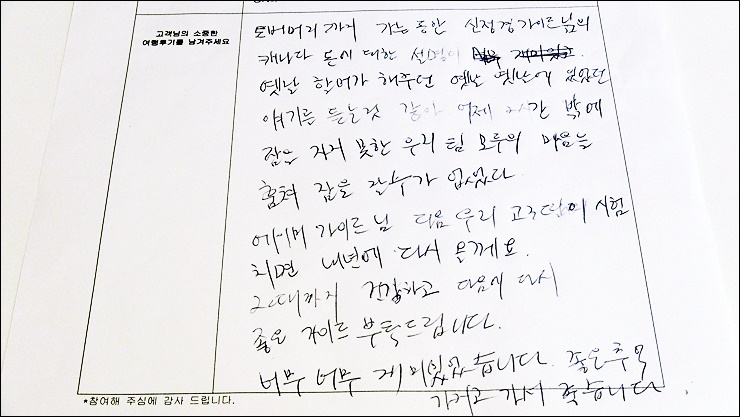 고객님의 소중한
여행후기를 남겨주세요
토버머리 까지 가는 동안 신정경 가이드님의
캐나다 돈에 대한 설명이
옛날 할머가 해주던 옛날 옛날에 있었던
얘기를 듣는것 같아 어제 2시간 밖에
잠을 자지 못한 우리 팀 모두의 마음을
훔쳐 잠을 잘수가 없었다
에이미 가이드 님 다음 우리 고3 시험
치면 내년에 다시 올께요.
그때까지 건강하고 다음에 다시
좋은 가이드 부탁드립니다.
너무 너무 제미있었습니다. 좋은 추억
가지고 가서 좋습니다.
*참여해 주심에 감사 드립니다.